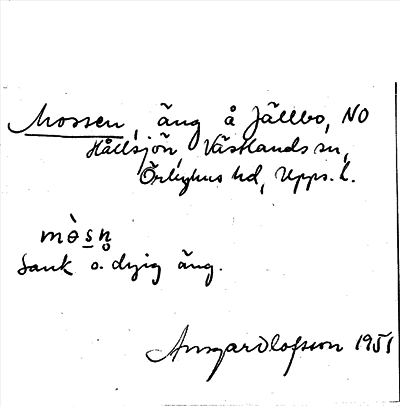 Mossen, äng å Jällbo, NO
Hållsjön, Västlands sn,
Örbyhus hd, Upps. l.
mòsn̥
Sank o. dyig äng.
Ansgar Olofsson 1951